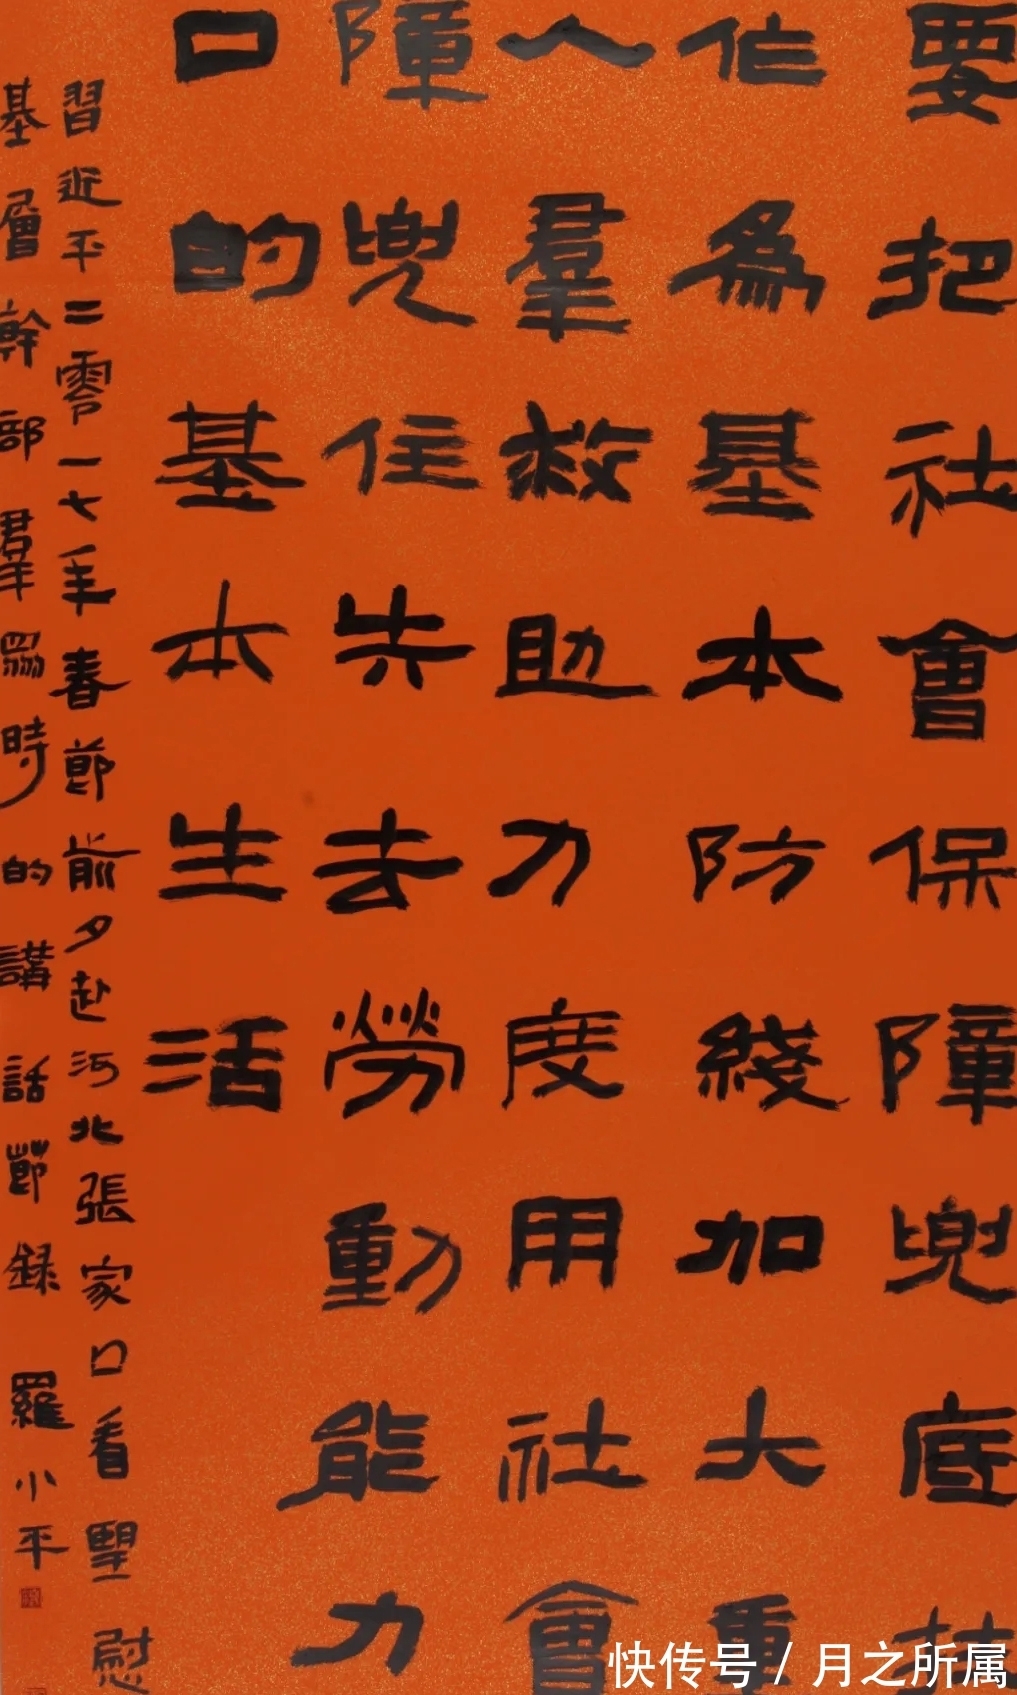 要把社會保障兜底扶
作為基本防綫加大重
人羣救助力度用社會
障兜住失去勞動能力
口的基本生活
習近平二零一七年春節前夕赴河北張家口看望慰
基層幹部羣眾時的講話節録 羅小平
快传号 / 月之所属